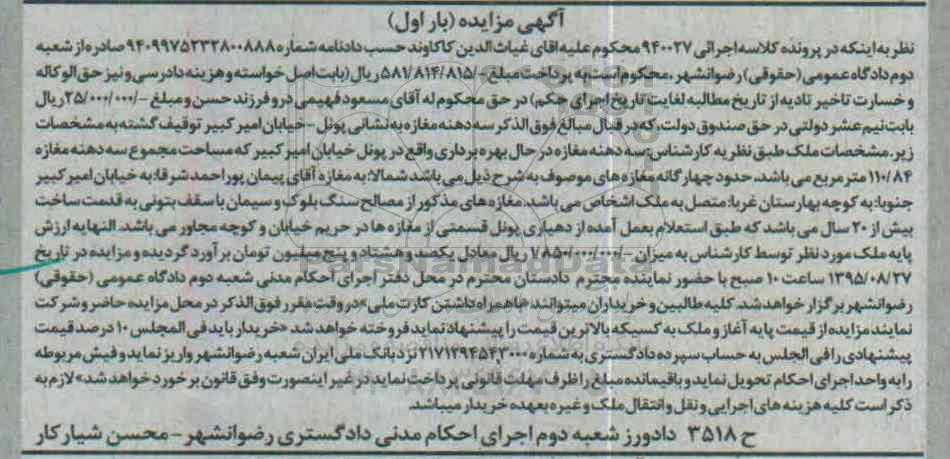 آگهی مزایده (بار اول)
نظر به اینکه در پرونده کلاسه اجرائی ۹۴۰۰۲۷ محکوم علیه اقای غیاث الدین کاکاوند حسب دادنامه شماره ۹۴۰۹۹۷۵۲۳۲۸۰۰۸۸۸ صادره از شعبه
دوم دادگاه عمومی (حقوقی) رضوانشهر، محکوم است به پرداخت مبلغ -/۵۸۱/۸۱۴/۸۱۵ ریال (بابت اصل خواسته و هزینه دادرسی و نیز حق الوکاله
و خسارت تاخیر تادیه از تاریخ مطالبه لغایت تاریخ اجرای حکم) در حق محکوم له آقای مسعود فهیمی درو فرزند حسن و مبلغ -/۲۵/۰۰۰/۰۰۰ ریال
بابت نیم عشر دولتی در حق صندوق دولت، که در قبال مبالغ فوق الذکر سه دهنه مغازه به نشانی پونل - خیابان امیر کبیر توقیف گشته به مشخصات
زیر. مشخصات ملک طبق نظریه کارشناس: سه دهنه مغازه در حال بهره برداری واقع در پونل خیابان امیر کبیر که مساحت مجموع سه دهنه مغازه
۱۱۰/۸۴ متر مربع می باشد. حدود چهارگانه مغازه های موصوف به شرح ذیل می باشد شمالا: به مغازه آقای پیمان پور احمد شرقا: به خیابان امیر کبیر
جنوبا: به کوچه بهارستان غربا: متصل به ملک اشخاص می باشد. مغازه های مذکور از مصالح سنگ بلوک و سیمان با سقف بتونی به قدمت ساخت
بیش از ۲۰ سال می باشد که طبق استعلام بعمل آمده از دهیاری پونل قسمتی از مغازه ها در حریم خیابان و کوچه مجاور می باشد. النهایه ارزش
پایه ملک مورد نظر توسط کارشناس به میزان -/۱/۸۵۰/۰۰۰/۰۰۰ ریال معادل یکصد و هشتاد و پنج میلیون تومان برآورد گردیده و مزایده در تاریخ
۱۳۹۵/۰۸/۲۷ ساعت ۱۰ صبح با حضور نماینده محترم دادستان محترم در محل دفتر اجرای احکام مدنی شعبه دوم دادگاه عمومی (حقوقی)
رضوانشهر برگزار خواهد شد. کلیه طالبین و خریداران میتوانند «با همراه داشتن کارت ملی» در وقت مقرر فوق الذکر در محل مزایده حاضر و شرکت
نمایند مزایده از قیمت پایه آغاز و ملک به کسیکه بالاترین قیمت را پیشنهاد نماید فروخته خواهد شد «خریدار باید فی المجلس ۱۰ درصد قیمت
پیشنهادی را فی الجلس به حساب سپرده دادگستری به شماره ۲۱۷۱۲۹۴۵۴۳۰۰۰ نزد بانک ملی ایران شعبه رضوانشهر واریز نماید و فیش مربوطه
را به واحد اجرای احکام تحویل نماید و باقیمانده مبلغ را ظرف مهلت قانونی پرداخت نماید در غیر اینصورت وفق قانون برخورد خواهد شد» لازم به
ذکر است کلیه هزینه های اجرایی و نقل و انتقال ملک و غیره بعهده خریدار میباشد.
ح ۳۵۱۸ دادورز شعبه دوم اجرای احکام مدنی دادگستری رضوانشهر - محسن شیارکار